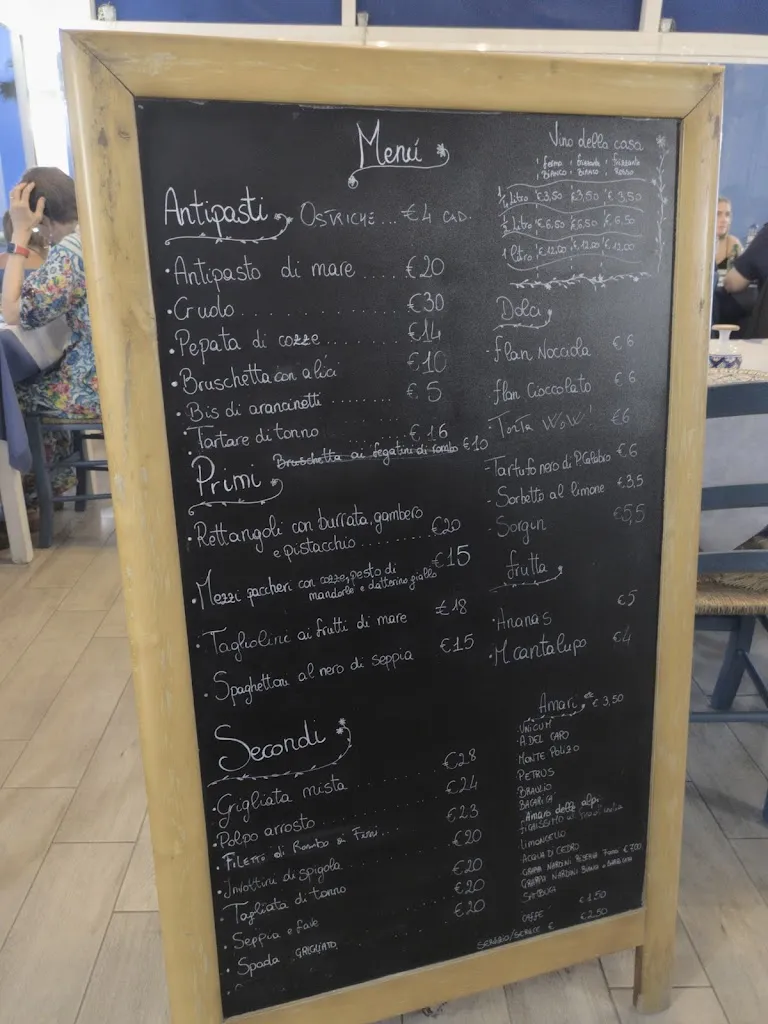 Menú
Antipasti OSTRICHE ... €4 CAD.
• Antipasto di mare ..... €20
• Crudo ........... €30
• Pepata di cozze ...... €14
• Bruschetta con alici €10
• Bis di arancinetti ........ € 5
• Tartare di tonno ....... € 16
Bruschetta ai fegatini di rombo €10
Primi
• Rettangoli con burrata, gambero
e pistacchio ........... €20
• Mezzi paccheri con cozze, pesto di €15
mandorle e datterino giallo
• Tagliolini ai frutti di mare €18
• Spaghettoni al nero di seppia €15
Secondi
• Grigliata mista ........ €28
• Polpo arrosto ........ €24
• Filetto di Rombo ai Funi... €23
• Involtini di spigola €20
• Tagliata di tonno €20
• Seppia e fave €20
• Spada GRIGLIATO €20
Vino della casa
fermo frizzante frizzante
BIANCO BIANCO ROSSO
1/4 litro €3,50 €3,50 €3,50
1/2 litro €6,50 €6,50 €6,50
1 litro €12,00 €12,00 €12,00
Dolci
• Flan Nocciola € 6
• Flan Cioccolato € 6
• Torta WOW! €6
• Tartufo nero di P. Calabro €6
• Sorbetto al limone €3,5
• Sorgin €5,5
frutta
• Ananas €5
• M cantalupo €4
Amari € 3,50
• UNICUM
• A. DEL CAPO
MONTE POLIZO
PETRUS
BRAULIO
Amaro delle alpi
limoncello
ACQUA DI CEDRO
GRAPPA NARDINI RISERVA €7,00
GRAPPA NARDINI BIANCA
SAMBUCA
CAFFE' €1,50
SERVIZIO/SERVICE € €2,50